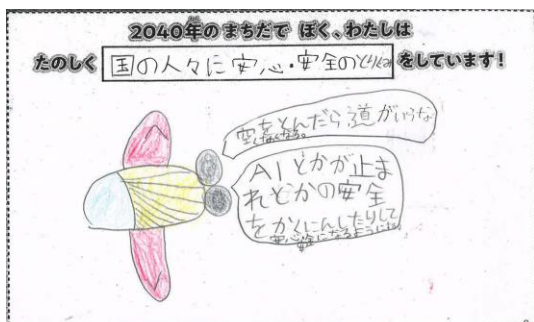 2040年のまちだで ぼく、わたしは
たのしく 国の人々に安心・安全のとりくみ をしています!
空をとんだら道がいらな
くなる。
AIとかが止ま
れとかの安全
をかくにんしたりして
安心安全になるように。